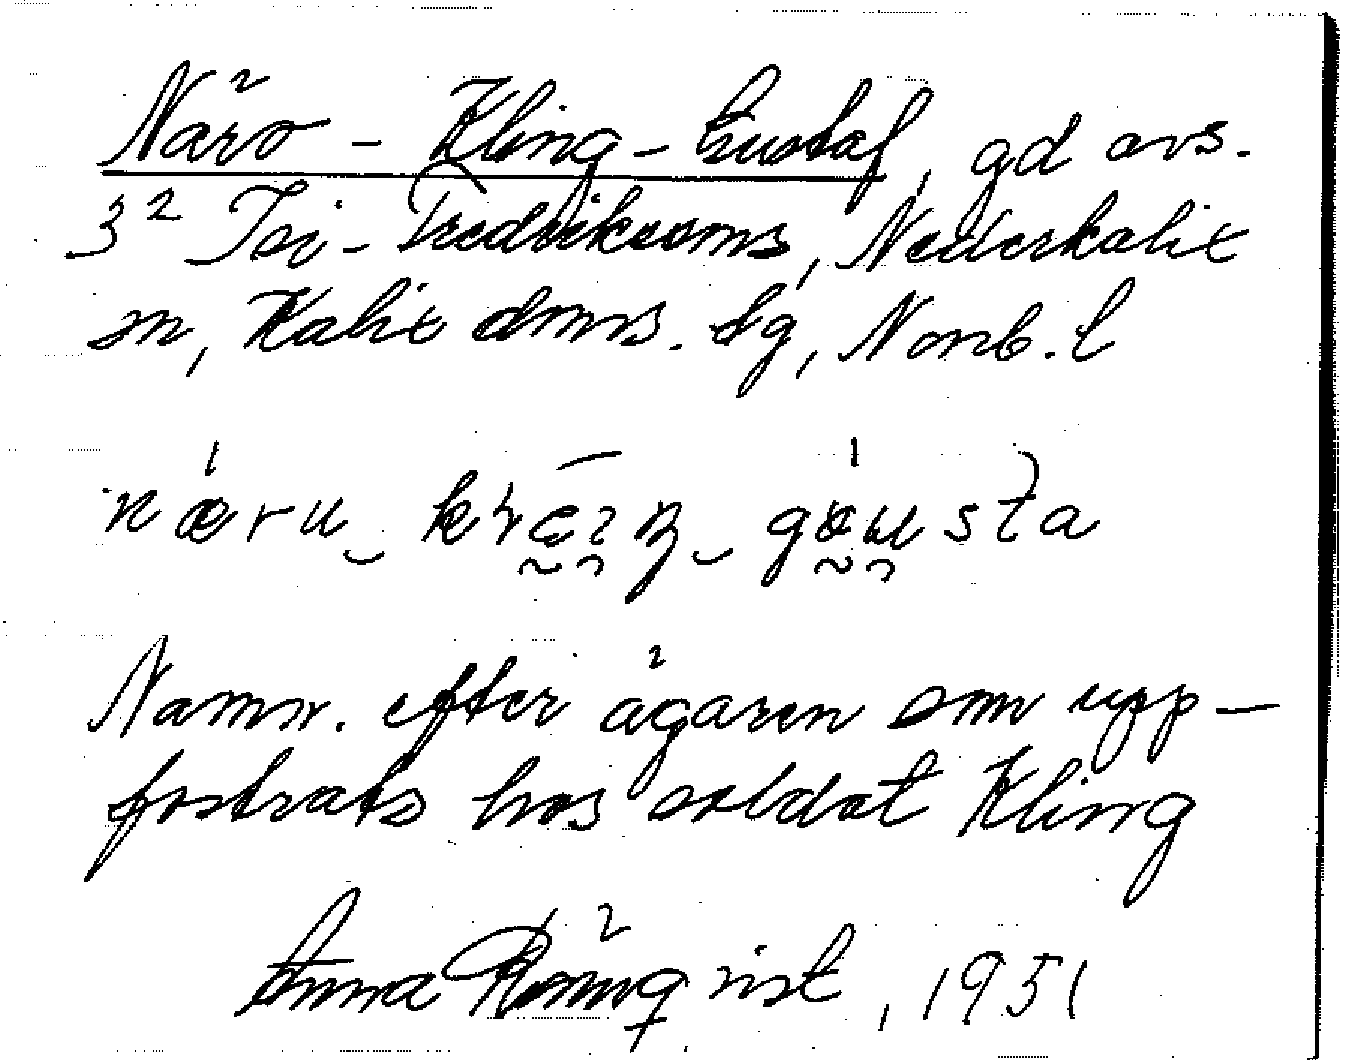 Närö - Kling-Gustaf, gd avs.
3² Tor-Fredriksoms, Nederkalix
sn, Kalix doms. lg, Norrb. l
Namn. efter ägaren som upp-
fostrats hos soldat Kling
Anna Rönnqvist, 1951